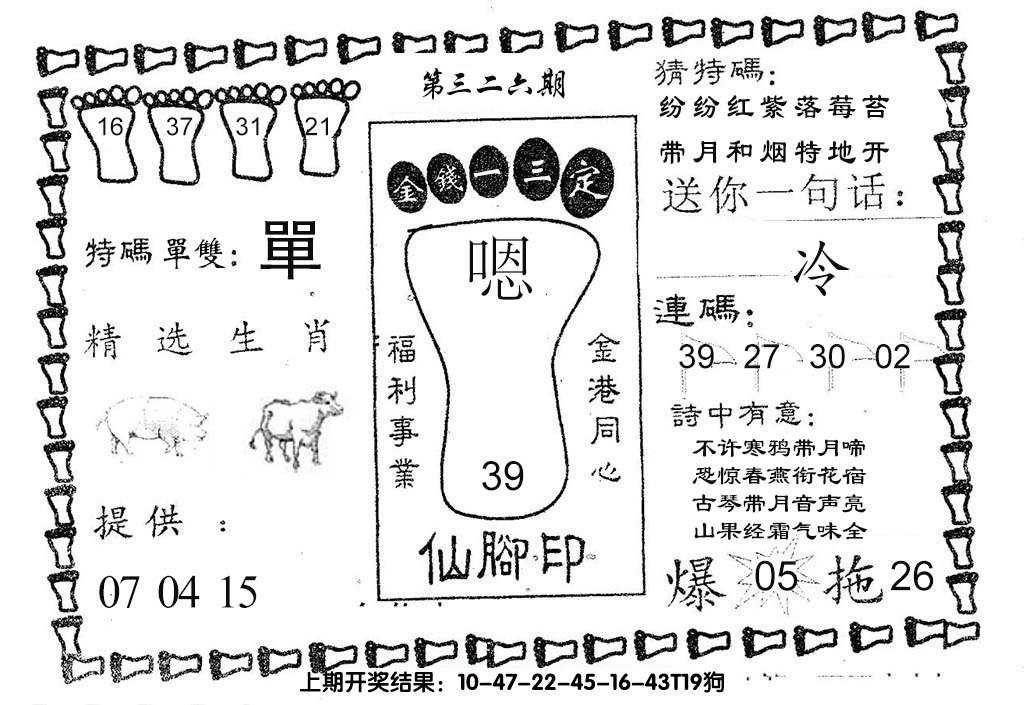 第三二六期
16 37 31 21
特碼單雙: 單
精选生肖
提供 :
07 04 15
金錢一三定
嗯
福利事業
金港同心
39
仙腳印
猜特碼:
纷纷红紫落莓苔
带月和烟特地开
送你一句话:
冷
連碼:
39 27 30 02
詩中有意:
不许寒鸦带月啼
恐惊春燕衔花宿
古琴带月音声亮
山果经霜气味全
爆 05 拖 26
上期开奖结果: 10-47-22-45-16-43T19狗